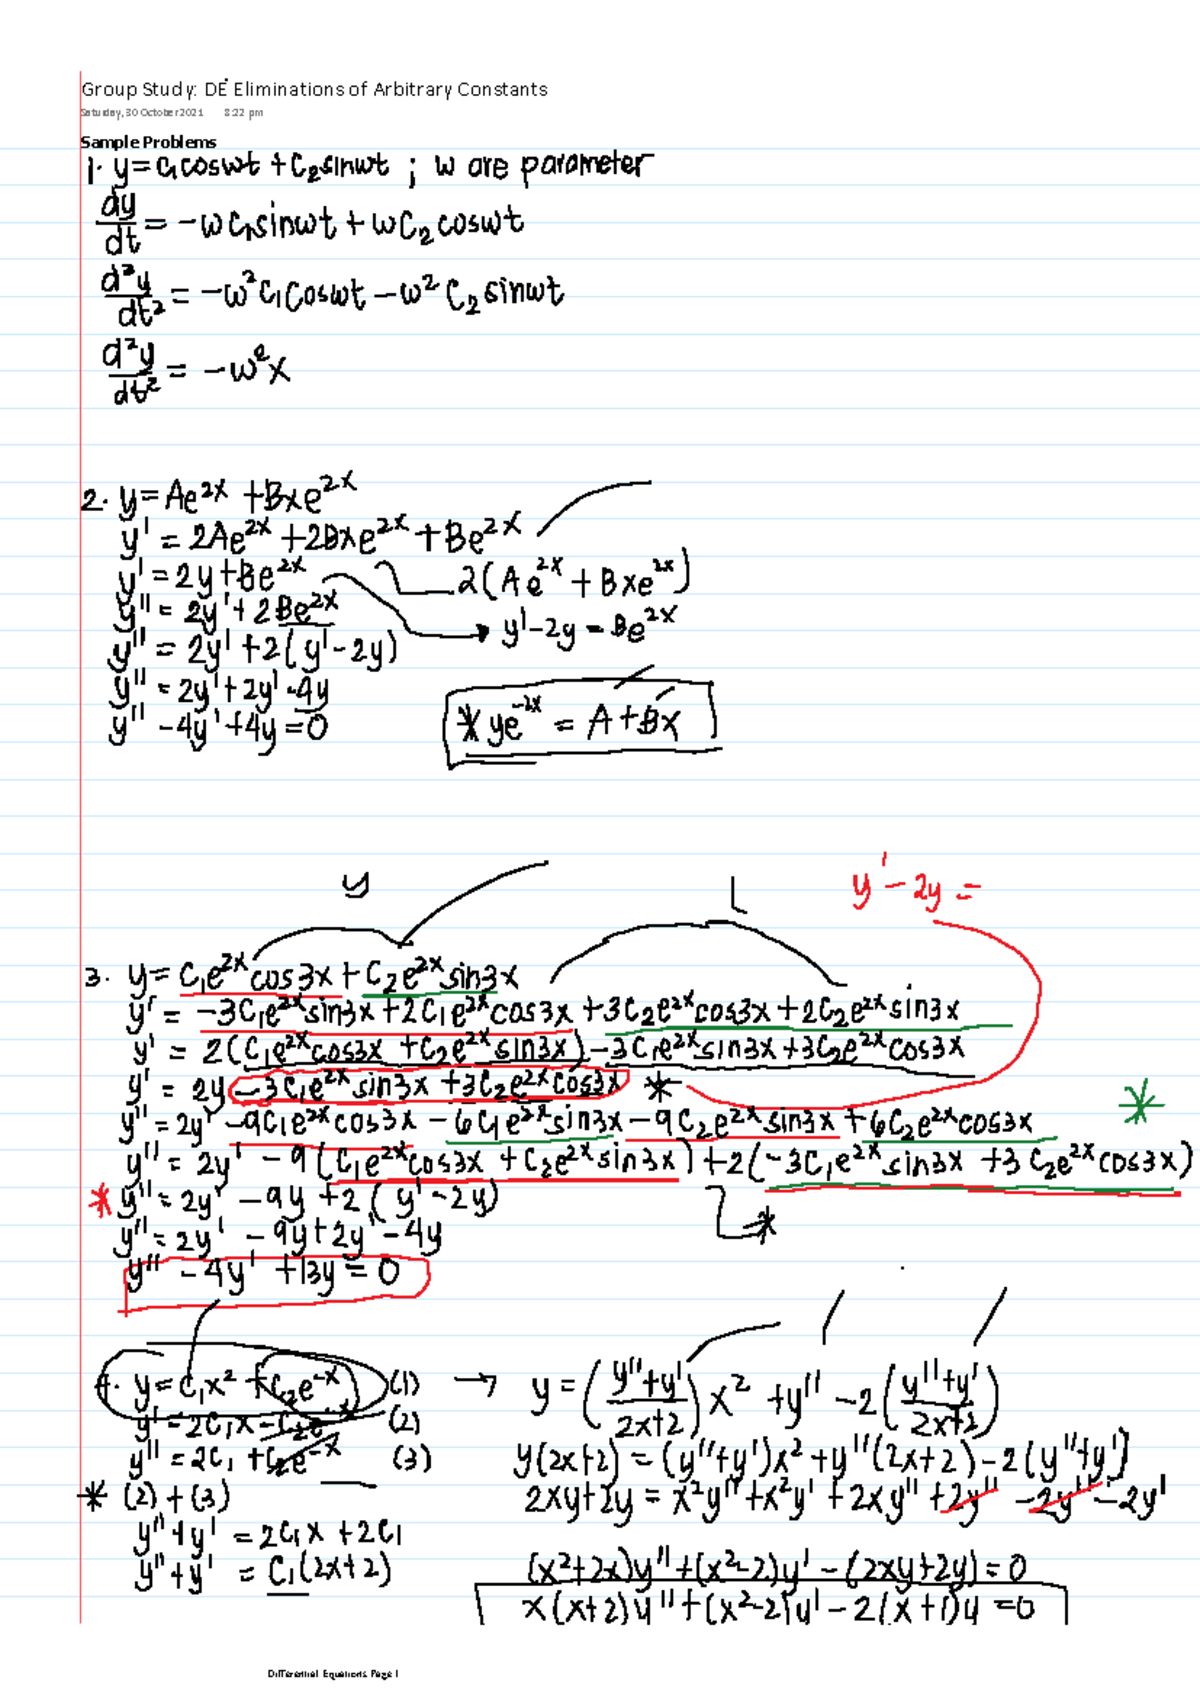 Group Study: DE Eliminations of Arbitrary Constants
Saturday, 30 October 2021 8:22 pm
Sample Problems
1. y = c₁coswt + c₂sinwt ; w are parameter
dy/dt = -wc₁sinwt + wc₂coswt
d²y/dt² = -w²c₁coswt - w²c₂sinwt
d²y/dt² = -w²x
2. y = Ae²ˣ + Bxe²ˣ
y' = 2Ae²ˣ + 2Bxe²ˣ + Be²ˣ
y' = 2y + Be²ˣ 2(Ae²ˣ + Bxe²ˣ)
y'' = 2y' + 2Be²ˣ y' - 2y = Be²ˣ
y'' = 2y' + 2(y' - 2y)
y'' = 2y' + 2y' - 4y
y'' - 4y' + 4y = 0 * ye⁻²ˣ = A + Bx
y y' - 2y =
3. y = C₁e²ˣcos3x + C₂e²ˣsin3x
y' = -3C₁e²ˣsin3x + 2C₁e²ˣcos3x + 3C₂e²ˣcos3x + 2C₂e²ˣsin3x
y' = 2(C₁e²ˣcos3x + C₂e²ˣsin3x) - 3C₁e²ˣsin3x + 3C₂e²ˣcos3x
y' = 2y - 3C₁e²ˣsin3x + 3C₂e²ˣcos3x *
y'' = 2y' - 9C₁e²ˣcos3x - 6C₁e²ˣsin3x - 9C₂e²ˣsin3x + 6C₂e²ˣcos3x *
y'' = 2y' - 9(C₁e²ˣcos3x + C₂e²ˣsin3x) + 2(-3C₁e²ˣsin3x + 3C₂e²ˣcos3x)
* y'' = 2y' - 9y + 2(y' - 2y) *
y'' = 2y' - 9y + 2y' - 4y
y'' - 4y' + 13y = 0
4. y = C₁x² + C₂e⁻ˣ (1) → y = ((y''+y')/(2x+2))x² + y'' - 2((y''+y')/(2x+2))
y' = 2C₁x - C₂e⁻ˣ (2)
y'' = 2C₁ + C₂e⁻ˣ (3) y(2x+2) = (y''+y')x² + y''(2x+2) - 2(y''+y')
* (2) + (3) 2xy + 2y = x²y'' + x²y' + 2xy'' + 2y'' - 2y'' - 2y'
y'' + y' = 2C₁x + 2C₁
y'' + y' = C₁(2x+2) (x²+2x)y'' + (x²-2)y' - (2xy+2y) = 0
x(x+2)y'' + (x²-2)y' - 2(x+1)y = 0
Differential Equations Page 1